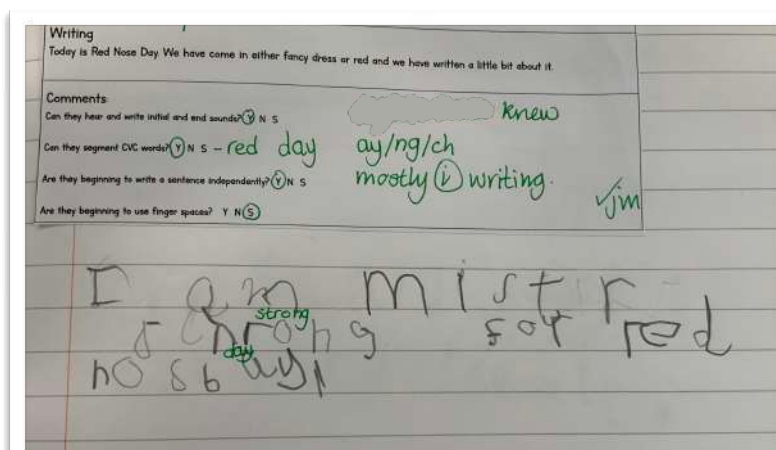 Writing
Today is Red Nose Day. We have come in either fancy dress or red and we have written a little bit about it.
Comments
Can they hear and write initial and end sounds? Y N S
knew
Can they segment CVC words? Y N S - red day
ay/ng/ch
Are they beginning to write a sentence independently? Y N S
mostly i writing.
Are they beginning to use finger spaces? Y N S
✓jm
I am mistr
strong
schrong for red
day
nos bay